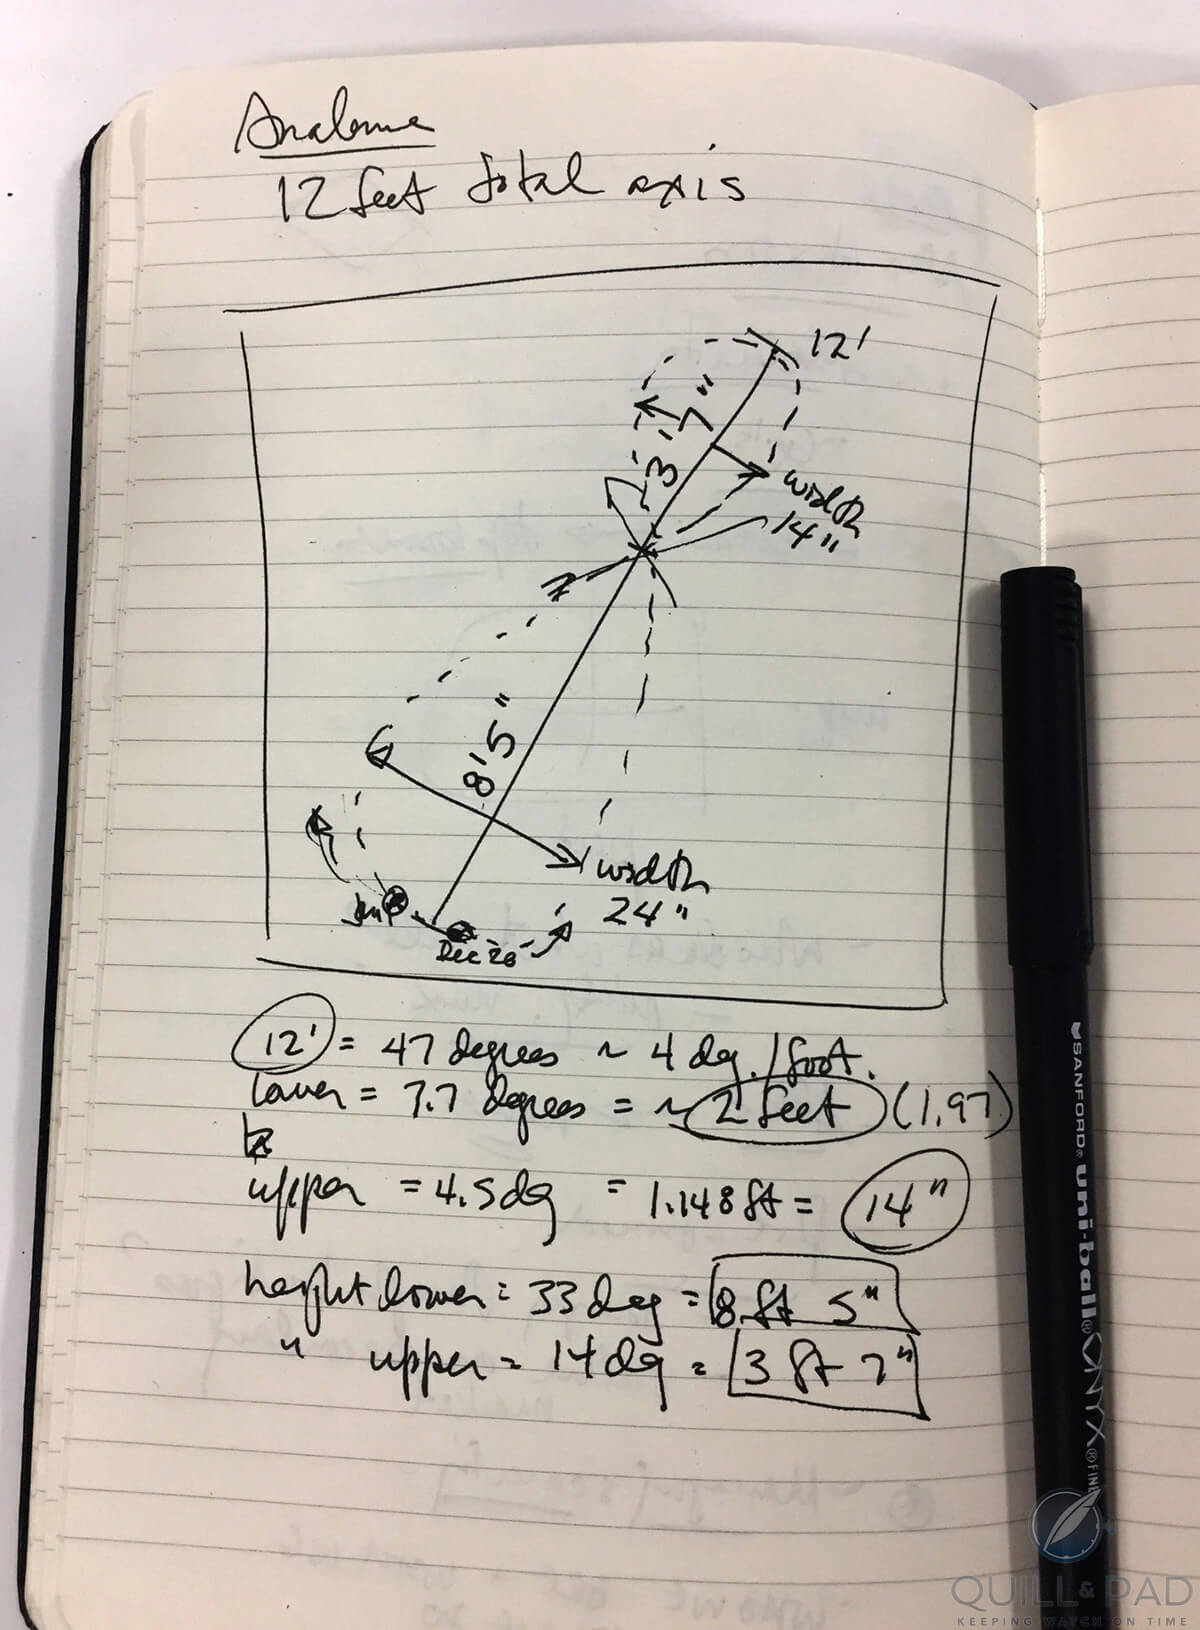 Analema
12 feet total axis
12'
3'7"
width
14"
8'5"
width
24"
Jan
Dec 20
12' = 47 degrees ~ 4 dg./foot.
lower = 7.7 degrees = ~ 2 feet (1.97)
upper = 4.5 dg = 1.148 ft = 14"
height lower = 33 deg = 8 ft 5"
" upper = 14 dg = 3 ft 7"
SANFORD® uni-ball® ONYX® FINE
QUILL & PAD
KEEPING WATCH ON TIME